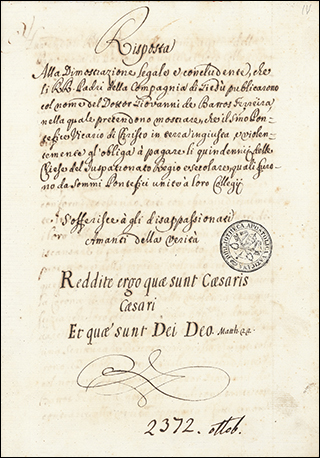 IV
Risposta
Alla Dimostrazione legale e concludente, che
li RR. Padri della Compagnia di Giesù publicarono
col nome del Dottor Giovanni de Barros Ferreira
nella quale pretendono mostrare, che il sõmo Pon-
tefice Vicario di Christo in terra ingiusta e violen-
temente gl'obliga à pagare li quindennij delle
Chiese del Juspatronato Regio e secolare, quali furo-
no da Sommi Pontefici unite a loro Collegij
S'offerisce à gli disappassionati
Amanti della Verità
Reddite ergo quæ sunt Cæsaris
Cæsari
Et quæ sunt Dei Deo. Matth. 22.
BIBLIOTHECA APOSTOLICA VATICANA
2372. ottob.